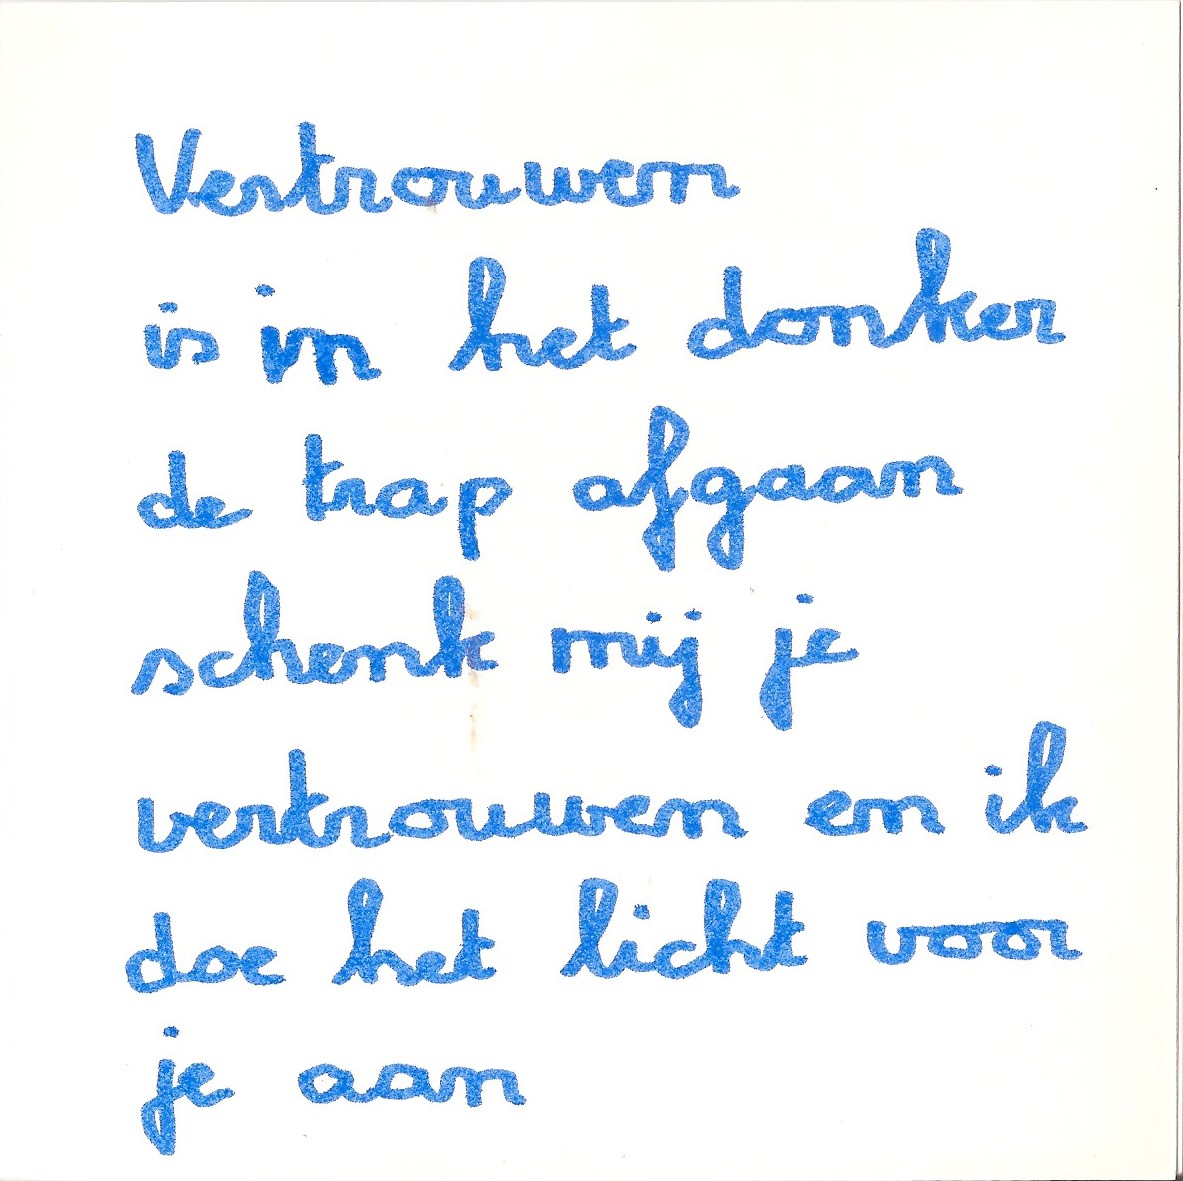 Vertrouwen
is in het donker
de trap afgaan
schenk mij je
vertrouwen en ik
doe het licht voor
je aan